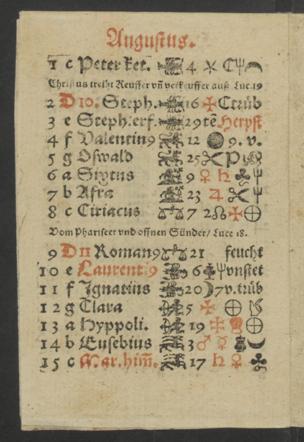 Augustus.
1 c Peter ket. 4
Christus treibt Keuffer vñ verkeuffer auß Luc. 19
2 D 10. Steph. 16 C trüb
3 e Steph. erf. 29 te Herpst
4 f Valentin9 12 9. v.
5 g Oswald 25
6 a Sixtus 9 ♀ ♄
7 b Afra 23 ♃
8 c Ciriacus 7 2
Vom Phariseer vnd offnen Sünder / Luce 18.
9 D 11 Roman9 21 feucht
10 e Laurenti9 6 vnstet
11 f Ignatius 20 7 v. trüb
12 g Clara 5
13 a Hyppoli. 19
14 b Eusebius 3 ♂ ☿
15 c Mar. him̃. 17 ♄ ♀